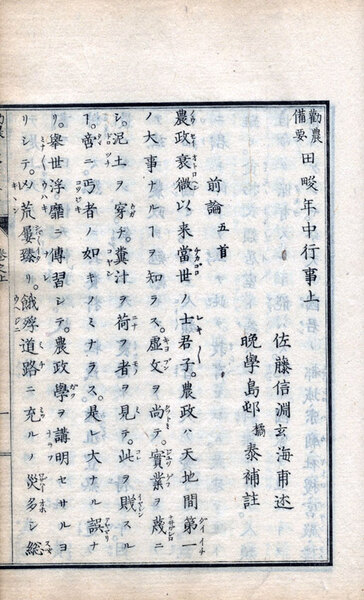 勸農備要 田畯年中行事上
佐藤信淵玄海甫述
晩學島邨 泰補註
前論 五首
農政衰微以來當世ノ士君子。農政ハ天地間第一
ノ大事ナルヿヲ知ラス。虛文ヲ尚テ。實業ヲ蔑ニ
シ。泥土ヲ穿チ。糞汁ヲ荷フ者ヲ見テ。此ヲ賤スル
ヿ。啻ニ丐者ノ如キノミナラス。是レ大ナル誤ナ
リ。擧世浮靡ニ傳習シテ。農政學ヲ講明セサルヨ
リシテ。凶荒屢臻リ。餓殍道路ニ充ルノ災多シ總